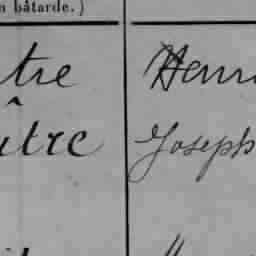 n bâtarde.)
tre Henri
ûtre Joseph